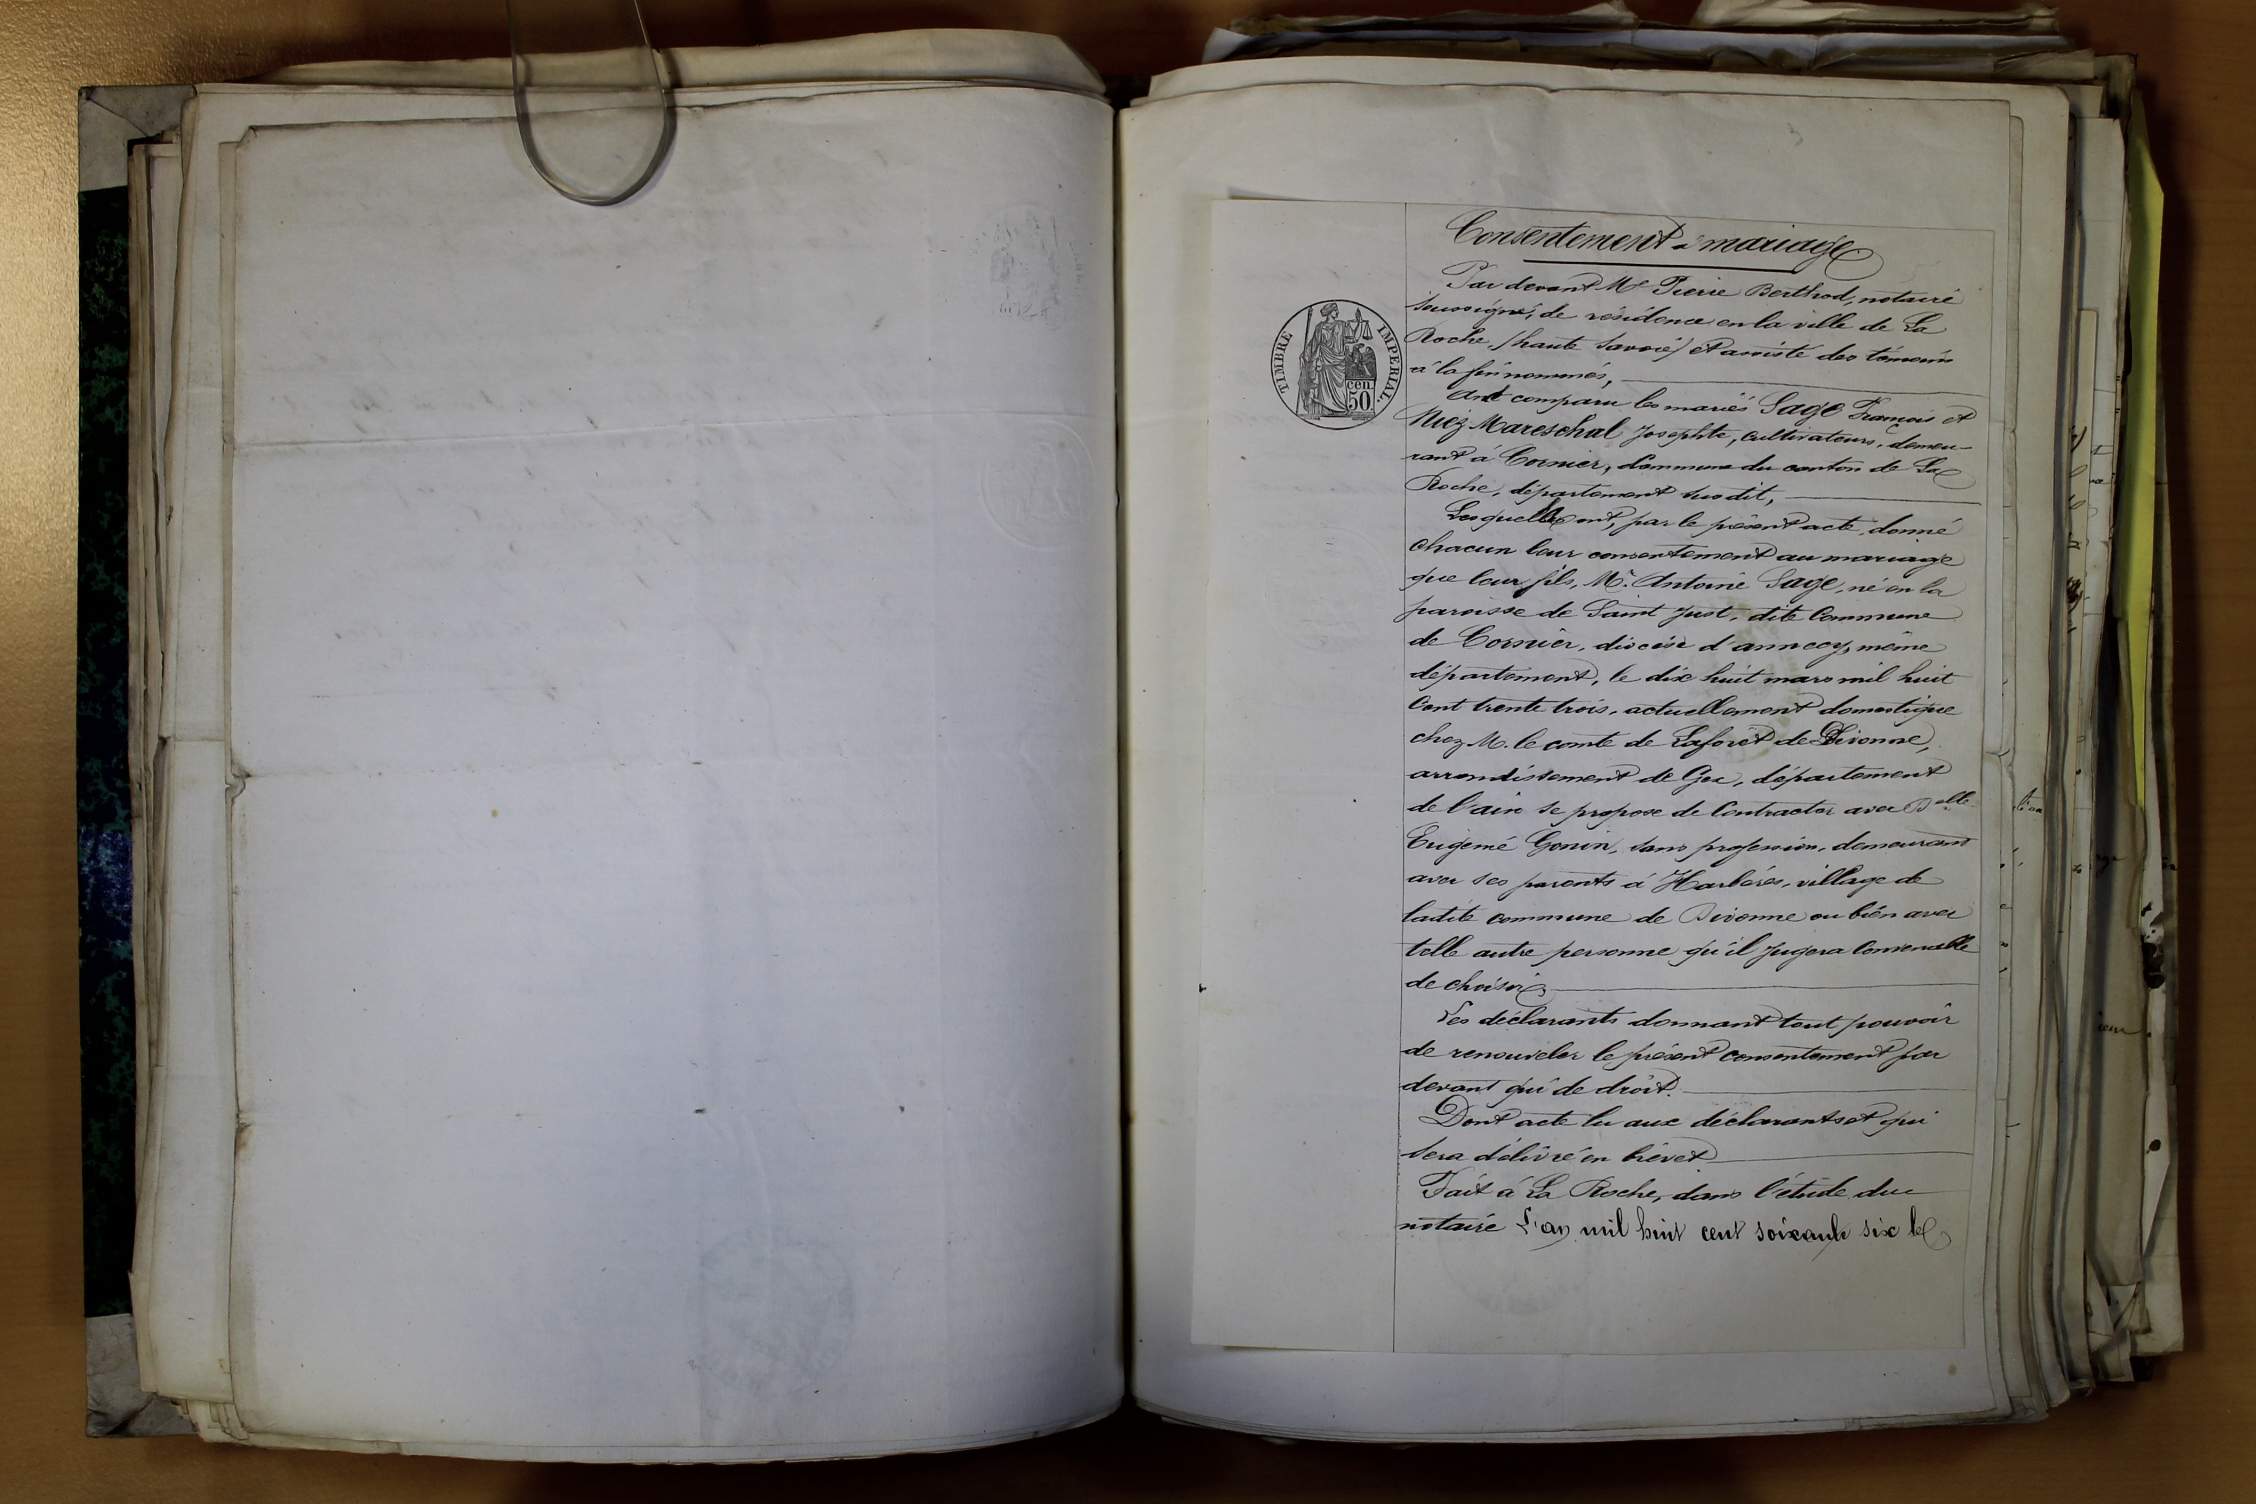 Consentement à mariage
Par devant Me Pierre Berthod, notaire
soussigné, de résidence en la ville de La
Roche, (haute Savoie) et assisté des témoins
à la fin nommés,
Ont comparu les mariés Sage François et
Niez Mareschal Josephte, cultivateurs, demeu-
rant à Cornier, Commune du canton de La
Roche, département susdit,
TIMBRE IMPERIAL
50 cen
Lesquels ont, par le présent acte, donné
chacun leur consentement au mariage
que leur fils, Mr. Antoine Sage, né en la
paroisse de Saint Just, dite Commune
de Cornier, diocèse d'annecy, même
département, le dix huit mars mil huit
Cent trente trois, actuellement domestique
chez M. le comte de Laforêt de Divonne,
arrondissement de Gex, département
de l'ain se propose de Contracter avec Delle
Eugenié Gonin, sans profession, demeurant
avec ses parents à Harbérés, village de
ladite commune de Divonne ou bien avec
telle autre personne qu'il jugera Convenable
de choisir
Les déclarants donnant tout pouvoir
de renouveler le présent consentement par
devant qui de droit.
Dont acte lu aux déclarants et qui
sera délivré en brevet
Fait à La Roche, dans l'étude du
notaire L'an mil huit cent soixante six le